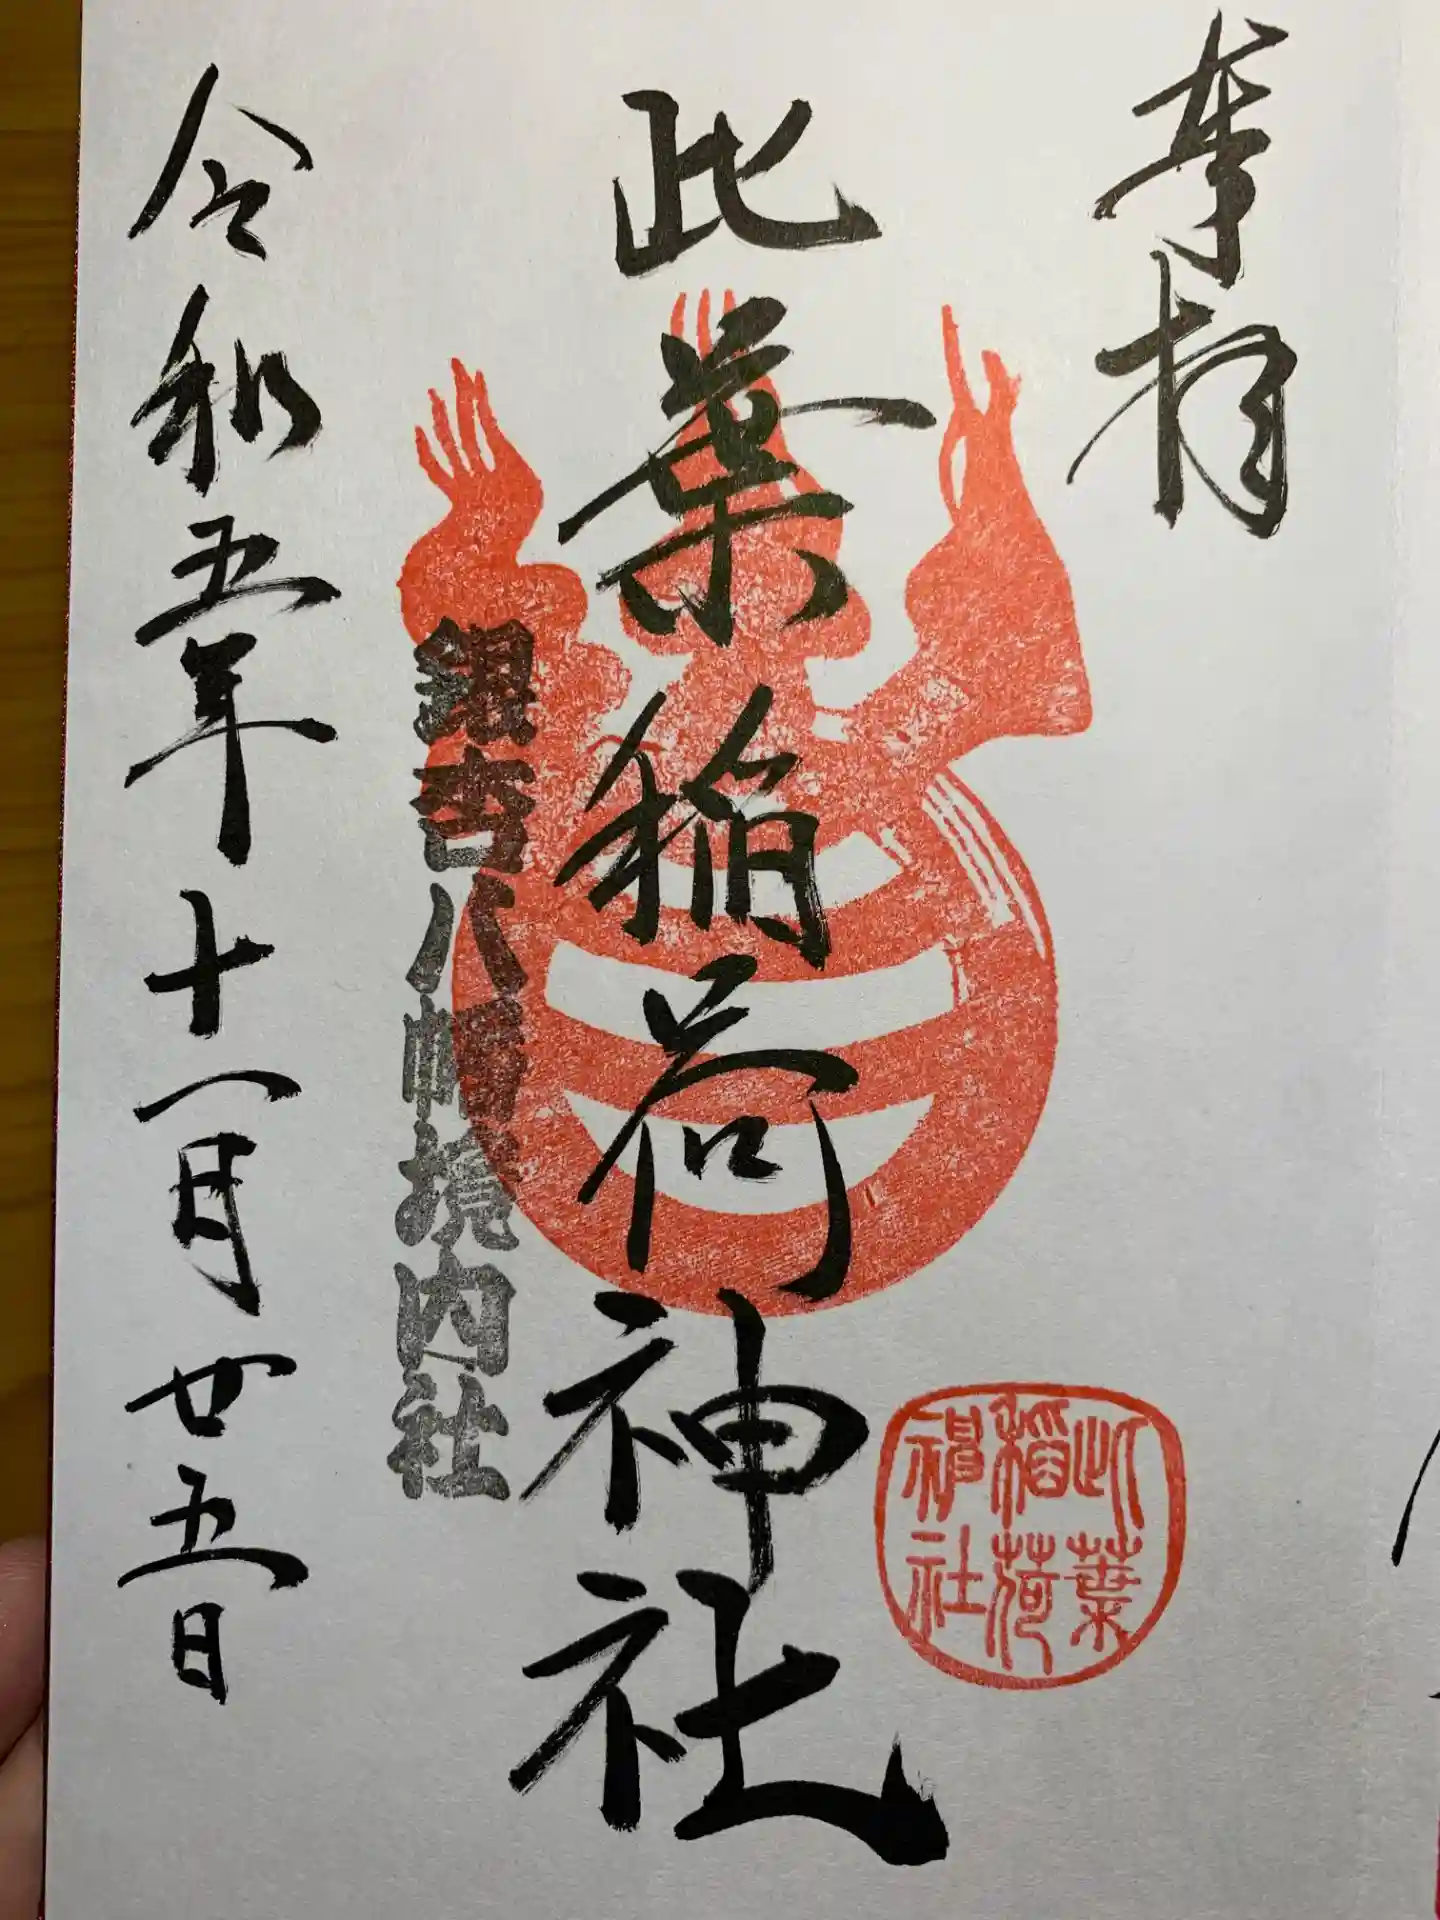 奉拝
此葉稲荷神社
此葉
稲荷
神社
銀杏八幡境内社
令和五年十一月廿五日